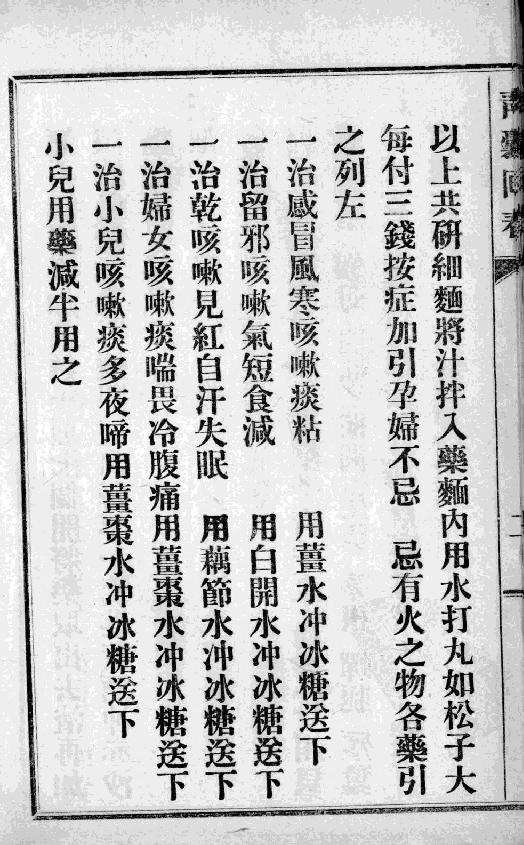 以上共硏細麵將汁拌入藥麵內用水打丸如松子大
每付三錢按症加引孕婦不忌　忌有火之物各藥引
之列左
一治感冒風寒咳嗽痰粘　用薑水冲冰糖送下
一治留邪咳嗽氣短食減　用白開水冲冰糖送下
一治乾咳嗽見紅自汗失眠　用藕節水冲冰糖送下
一治婦女咳嗽痰喘畏冷腹痛用薑棗水冲冰糖送下
一治小兒咳嗽痰多夜啼用薑棗水冲冰糖送下
小兒用藥減半用之